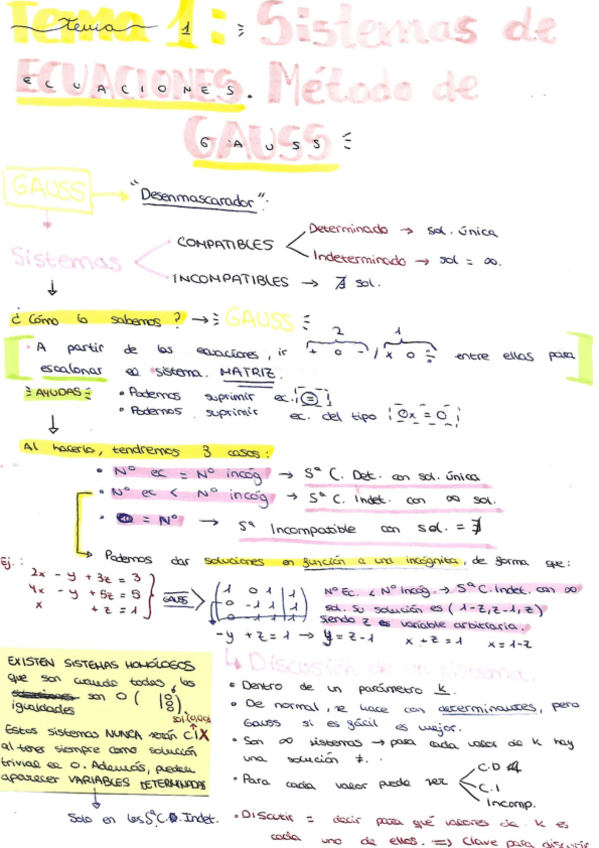 Tema 1: Sistemas de
ECUACIONES. Método de
GAUSS
GAUSS → "Desenmascarador":
Sistemas
COMPATIBLES
Determinado → sol. única
Indeterminado → sol = ∞.
INCOMPATIBLES → ∄ sol.
¿Cómo lo sabemos? → GAUSS
2 1
• A partir de las ecuaciones, ir + o - / x o ÷ entre ellas para
escalonar el sistema. MATRIZ.
AYUDAS
• Podemos suprimir ec. (=)
• Podemos suprimir ec. del tipo 0x = 0
Al hacerlo, tendremos 3 casos:
• Nº ec = Nº incóg → Sª C. Det. con sol. única
• Nº ec < Nº incóg → Sª C. Indet. con ∞ sol.
• 0 = Nº → Sª Incompatible con sol. = ∄
Podemos dar soluciones en función a una incógnita, de forma que:
Ej.:
2x - y + 3z = 3
4x - y + 5z = 5
x + z = 1
GAUSS
1 0 1 1
0 -1 1 1
Nº Ec. < Nº Incóg. → Sª C. Indet. con ∞
sol. Su solución es (1-z, z-1, z)
siendo z es variable arbitraria.
-y + z = 1 → y = z-1 x + z = 1 x = 1-z
EXISTEN SISTEMAS HOMÓLOGOS
que son cuando todas las
son 0
igualdades
sol (0,0,0)
Estos sistemas NUNCA serán
al tener siempre como solución
trivial el 0. Además, pueden
aparecer VARIABLES DETERMINADAS
Solo en los Sª C. Indet.
Discusión de un sistema.
• Dentro de un parámetro k.
• De normal, se hace con determinantes, pero
Gauss si es fácil es mejor.
• Son ∞ sistemas → para cada valor de k hay
una solución ≠.
• Para cada valor puede ser
C.D
C.I
Incomp.
• Discutir = decir para qué valores de k es
cada uno de ellos. => Clave para discutir